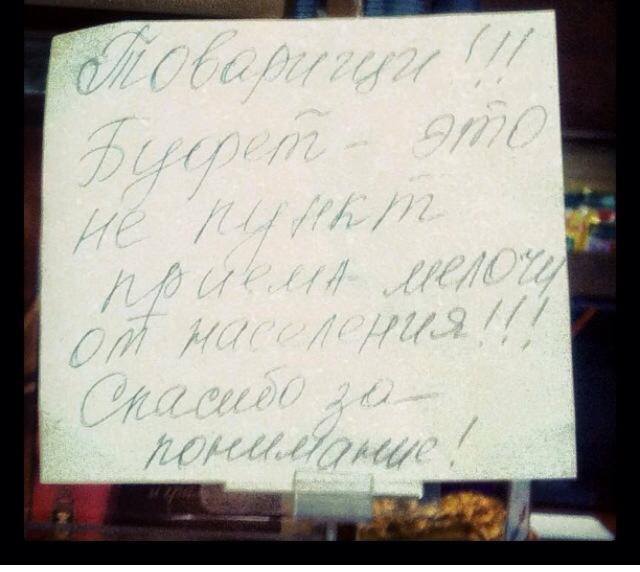 Товарищи!!!
Буфет - это
не пункт
приема мелочи
от населения!!!
Спасибо за-
понимание!